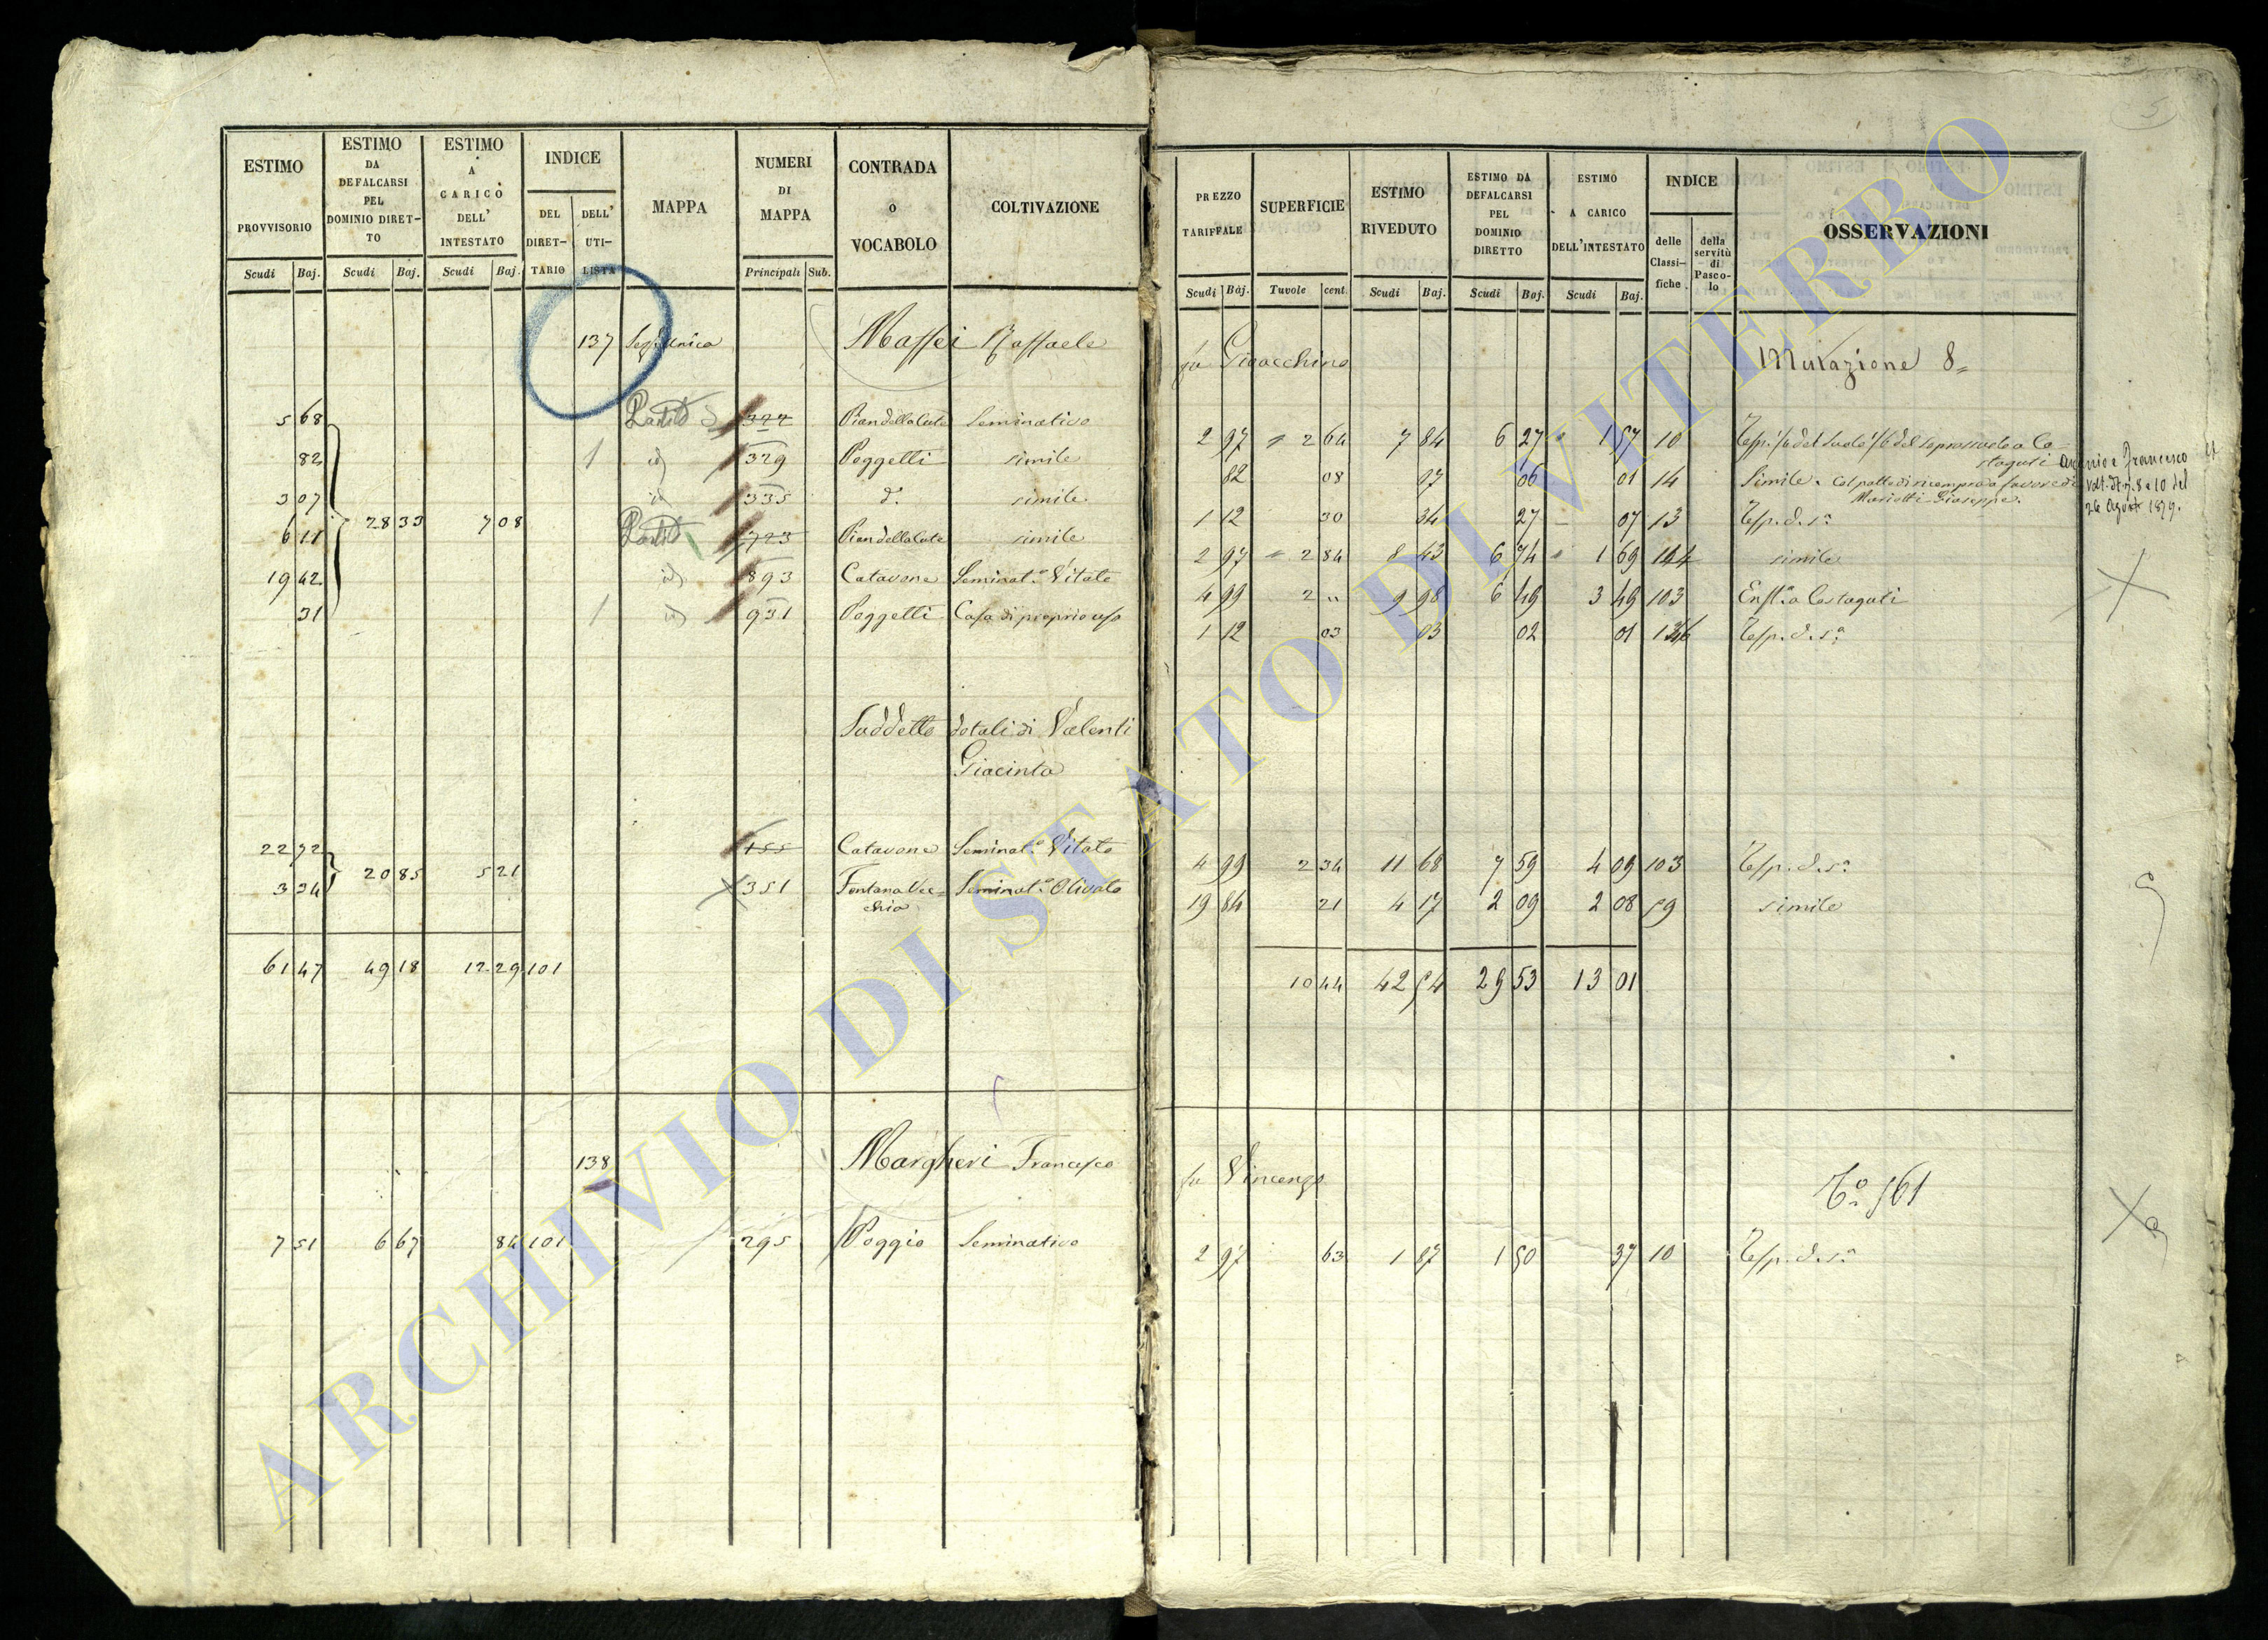 5
ESTIMO PROVVISORIO Scudi Baj.
ESTIMO DA DEFALCARSI PEL DOMINIO DIRET-TO Scudi Baj.
ESTIMO A CARICO DELL' INTESTATO Scudi Baj.
INDICE DEL DIRET-TARIO DELL' UTI-LISTA
MAPPA
NUMERI DI MAPPA Principali Sub.
CONTRADA O VOCABOLO
COLTIVAZIONE
PREZZO TARIFFALE Scudi Baj.
SUPERFICIE Tavole cent.
ESTIMO RIVEDUTO Scudi Baj.
ESTIMO DA DEFALCARSI PEL DOMINIO DIRETTO Scudi Baj.
ESTIMO A CARICO DELL'INTESTATO Scudi Baj.
INDICE delle Classi-fiche della servitù di Pasco-lo
OSSERVAZIONI
137 Sez. Unica Maffei Raffaele fu Gioacchino Mutazione 8
5 68 322 Piandellacute Seminativo 2 97 2 64 7 84 6 27 1 57 10
82 id 329 Poggetti simile 82 08 07 06 01 14 Simile
3 07 id 335 d.° simile 1 12 30 34 27 07 13
6 11 28 33 7 08 723 Piandellacute simile 2 97 2 84 8 43 6 74 1 69 144 simile
19 42 id 893 Catavone Seminat.° Vitato 4 99 2 " 9 98 6 49 3 49 103
31 id 931 Poggetti Casa di proprio uso 1 12 03 03 02 01 136
Mariotti Giuseppe.
Francesco
26 Agosto 1879.
Suddetto dotali di Valenti
Giacinta
22 72 155 Catavone Seminat.° Vitato 4 99 2 34 11 68 7 59 4 09 103
3 34 20 85 5 21 351 Fontana Vec=chia Seminat.° Olivato 19 84 21 4 17 2 09 2 08 59 simile
61 47 49 18 12 29 101 10 44 42 54 29 53 13 01
138 Margheri Francesco fu Vincenzo 561
7 51 6 67 84 101 295 Poggio Seminativo 2 97 63 1 87 1 50 37 10
ARCHIVIO DI STATO DI VITERBO